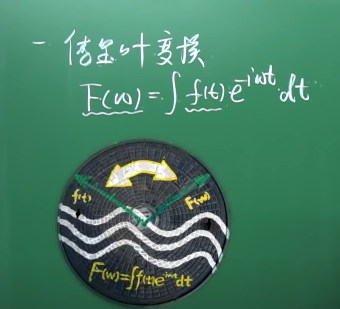 一 傅里叶变换
F(ω)=∫f(t)e^{-iωt}dt
f(t)
F(ω)
F(ω)=∫f(t)e^{-iωt}dt